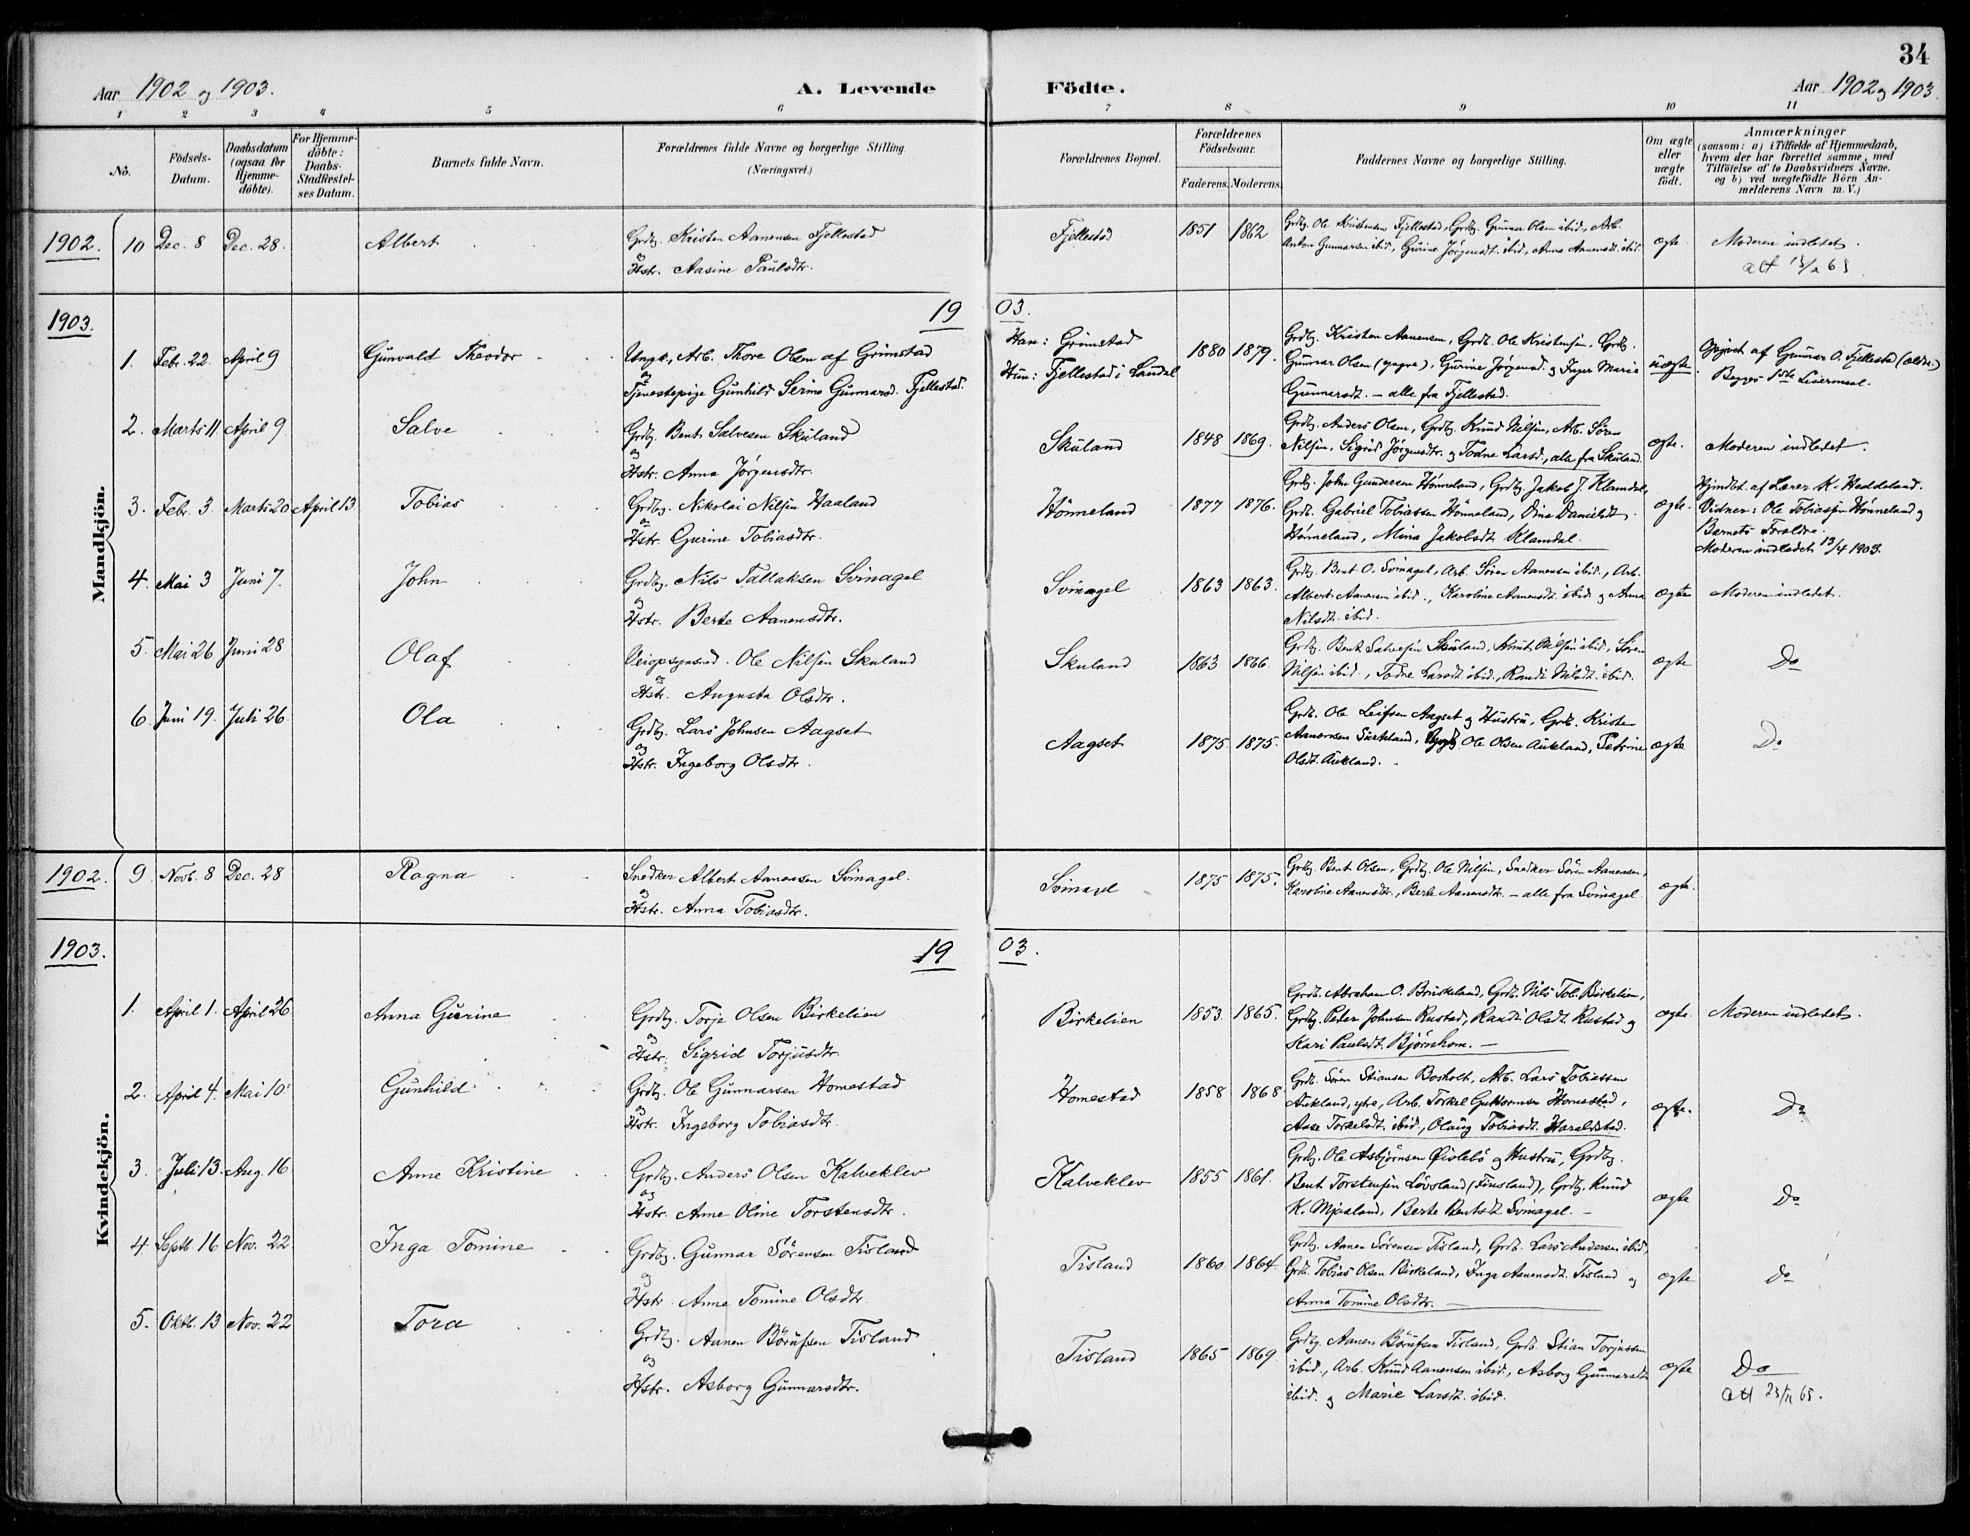 34
Aar 1902 og 1903.
A. Levende Födte.
Aar 1902 og 1903.
1 2 3 4 5 6 7 8 9 10 11
No.
Födsels-Datum.
Daabsdatum (ogsaa for Hjemme-döbte).
For Hjemme-döbte: Daabs-Stadfæstel-ses Datum.
Barnets fulde Navn.
Forældrenes fulde Navne og borgerlige Stilling.
(Næringsvei.)
Forældrenes Bopæl.
Forældrenes Födselsaar.
Faderens. Moderens.
Faddernes Navne og borgerlige Stilling.
Om ægte eller uægte födt.
Anmærkninger
(saasom: a) i Tilfælde af Hjemmedaab, hvem der har forrettet samme, med Tilföielse af to Daabsvidners Navne, og b) ved uægtefödte Börn An-melderens Navn m. V.)
Mandkjön.
1902. 10 Dec. 8 Dec. 28. Albert
Grdbg. Kristen Aanensen Fjellestad
og
Hstr. Aasine Paulsdtr.
Fjellestad 1851 1862
Grdbg. Ole Kristensen Fjellestad, Grdbg. Gunnar Olsen ibid., Arb.
Anton Gunnarsen ibid., Gurine Jörgensdt. ibid., Anna Aanensdt. ibid.
ægte
Moderen indledet.
1903.
19 03.
1. Febr. 22 April 9 Gunvald Theodor
Ungk., Arb. Thore Olsen af Grimstad
og
Tjenestepige Gunhild Serine Gunnarsd. Fjellestad.
Han: Grimstad
Hun: Fjellestad i Landal
1880 1879.
Grdbg. Kristen Aanensen, Grdb. Ole Kristensen, Grdb.
Gunnar Olsen (yngre), Gurine Jörgensd. og Inger Marie
Gunnarsdt. – alle fra Fjellestad.
uægte
Opgivet af Gunnar O. Fjellestad (ældre.)
Begges 1ste Leiermaal.
2. Marts 11 April 9 Salve
Grdbg. Bent Salvesen Skuland
og
Hstr. Anna Jörgensdtr.
Skuland 1848 1869.
Grdbg. Anders Olsen, Grdbg. Knud Nilsen, Arb. Sören
Nilsen, Sigrid Jörgensdtr. og Todne Larsd., alle fra Skuland.
ægte.
Moderen indledet.
3. Febr. 3. Marts 20 April 13 Tobias
Grdbg. Nikolai Nilsen Haaland
og
Hstr. Gurine Tobiasdtr.
Hönneland 1877 1876.
Grdbg. John Gundersen Hönneland, Grdbg Jakob J. Klamdal,
Grdb. Gabriel Tobiassen Hönneland, Dina Danielsdt.
Hönneland, Mina Jakobsdt. Klamdal.
ægte.
Hjmdbt. af Lærer K. Heddeland.
Vidner: Ole Tobiasen Hönneland og
Barnets Foraldre.
Moderen indledet 13/4 1903.
4. Mai 3 Juni 7. John
Grdbg. Nils Tallaksen Svinagel
og
Hstr. Berte Aanensdtr.
Svinagel 1863 1863.
Grdbg. Bent O. Svinagel, Arb. Sören Aanensen ibid., Arb.
Albert Aanensen ibid., Karoline Aanensdt. ibid. og Anna
Nilsdt. ibid.
ægte
Moderen indledet.
5. Mai 26 Juni 28 Olaf
Veiopsynsmd. Ole Nilsen Skuland
og
Hstr. Augusta Olsdtr.
Skuland 1863 1866
Grdbg. Bent Salvesen Skuland, Knut Nilsen ibid., Sören
Nilsen ibid., Todne Larsdt. ibid., Randi Nilsdt. ibid.
ægte
Do
6. Juni 19. Juli 26 Ola
Grdbg. Lars Johnsen Aagset
og
Hstr. Ingeborg Olsdtr.
Aagset 1875. 1875.
Grdb. Ole Leifsen Aagset og Hustru, Grdb. Kristen
Aanensen Ole Olsen Aukland, Petrine
Olsdt. Aukland.
ægte
Do
Kvindekjön.
1902. 9 Novb. 8 Dec. 28 Ragna
Snedker Albert Aanensen Svinagel.
og
Hstr. Anna Tobiasdtr.
Svinagel 1875 1875.
Grdbg. Bent Olsen, Grdbg. Ole Nilsen, Snedker Sören Aanensen,
Karoline Aanensdtr., Berte Aanensdtr. – alle fra Svinagel.
ægte.
1903.
19 03.
1. April 1. April 26 Anna Gurine
Grdbg. Torje Olsen Birkelien
og
Hstr. Sigrid Torjusdtr.
Birkelien 1853. 1865.
Grdb. Abraham O. Bruskeland, Grdb. Nils Tob. Birkelien,
Grdbg. Peder Johnsen Rustad, Randi Olsdt. Rustad og
Kari Paulsdt. Björnhom. –
ægte.
Moderen indledet.
2. April 4. Mai 10 Gunhild
Grdbg. Ole Gunnarsen Homestad
og
Hstr. Ingeborg Tobiasdtr.
Homestad 1858 1868
Grdb. Sören Stiansen Bosholt, Arb. Lars Tobiassen
Aukland, ytre, Arb. Torkel Guttormsen Homestad,
Aase Torkelsdt. ibid., Olaug Tobiasdt. Haraldstad.
ægte.
Do
3. Juli 13. Aug. 16 Anne Kristine
Grdbg. Anders Olsen Kalveklev
og
Hstr. Anne Oline Torstensdtr.
Kalveklev 1855 1861.
Grdbg. Ole Asbjörnsen Öislebö og Hustru, Grdbg.
Bent Torstensen Lövsland (Finsland), Grdbg. Knud
K. Mjaaland, Berte Bentsdt. Svinagel. –
ægte
Do
4. Septb 16 Nov. 22 Inga Tomine
Grdbg. Gunnar Sörensen Tisland
og
Hstr. Anne Tomine Olsdtr.
Tisland 1860 1864
Grdbg. Aanen Sörensen Tisland, Grdb. Lars Andersen ibid,
Grdb. Tobias Olsen Birkeland, Inga Aanensdt. Tisland og
Anna Tomine Olsdtr. –
ægte
Do
5. Oktb. 13 Nov. 22 Tora
Grdbg. Aanen Börufsen Tisland
og
Hstr. Asborg Gunnarsdtr.
Tisland 1865 1869.
Grdbg Aanen Börufsen Tisland, Grdb. Stian Torjussen
ibid., Arb. Knud Aanensen ibid., Asborg Gunnarsdt.
ibid. og Marie Larsdt. ibid.
ægte
Do